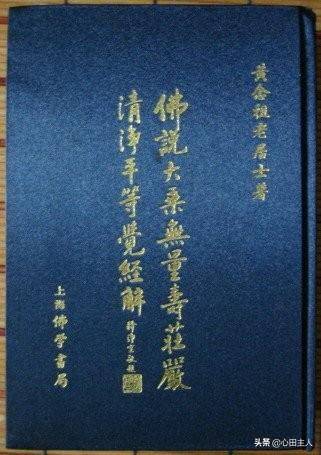 黃念祖老居士著
佛說大乘無量壽莊嚴
清淨平等覺經解
釋淨空敬題
上海佛學書局
头条 @心田主人